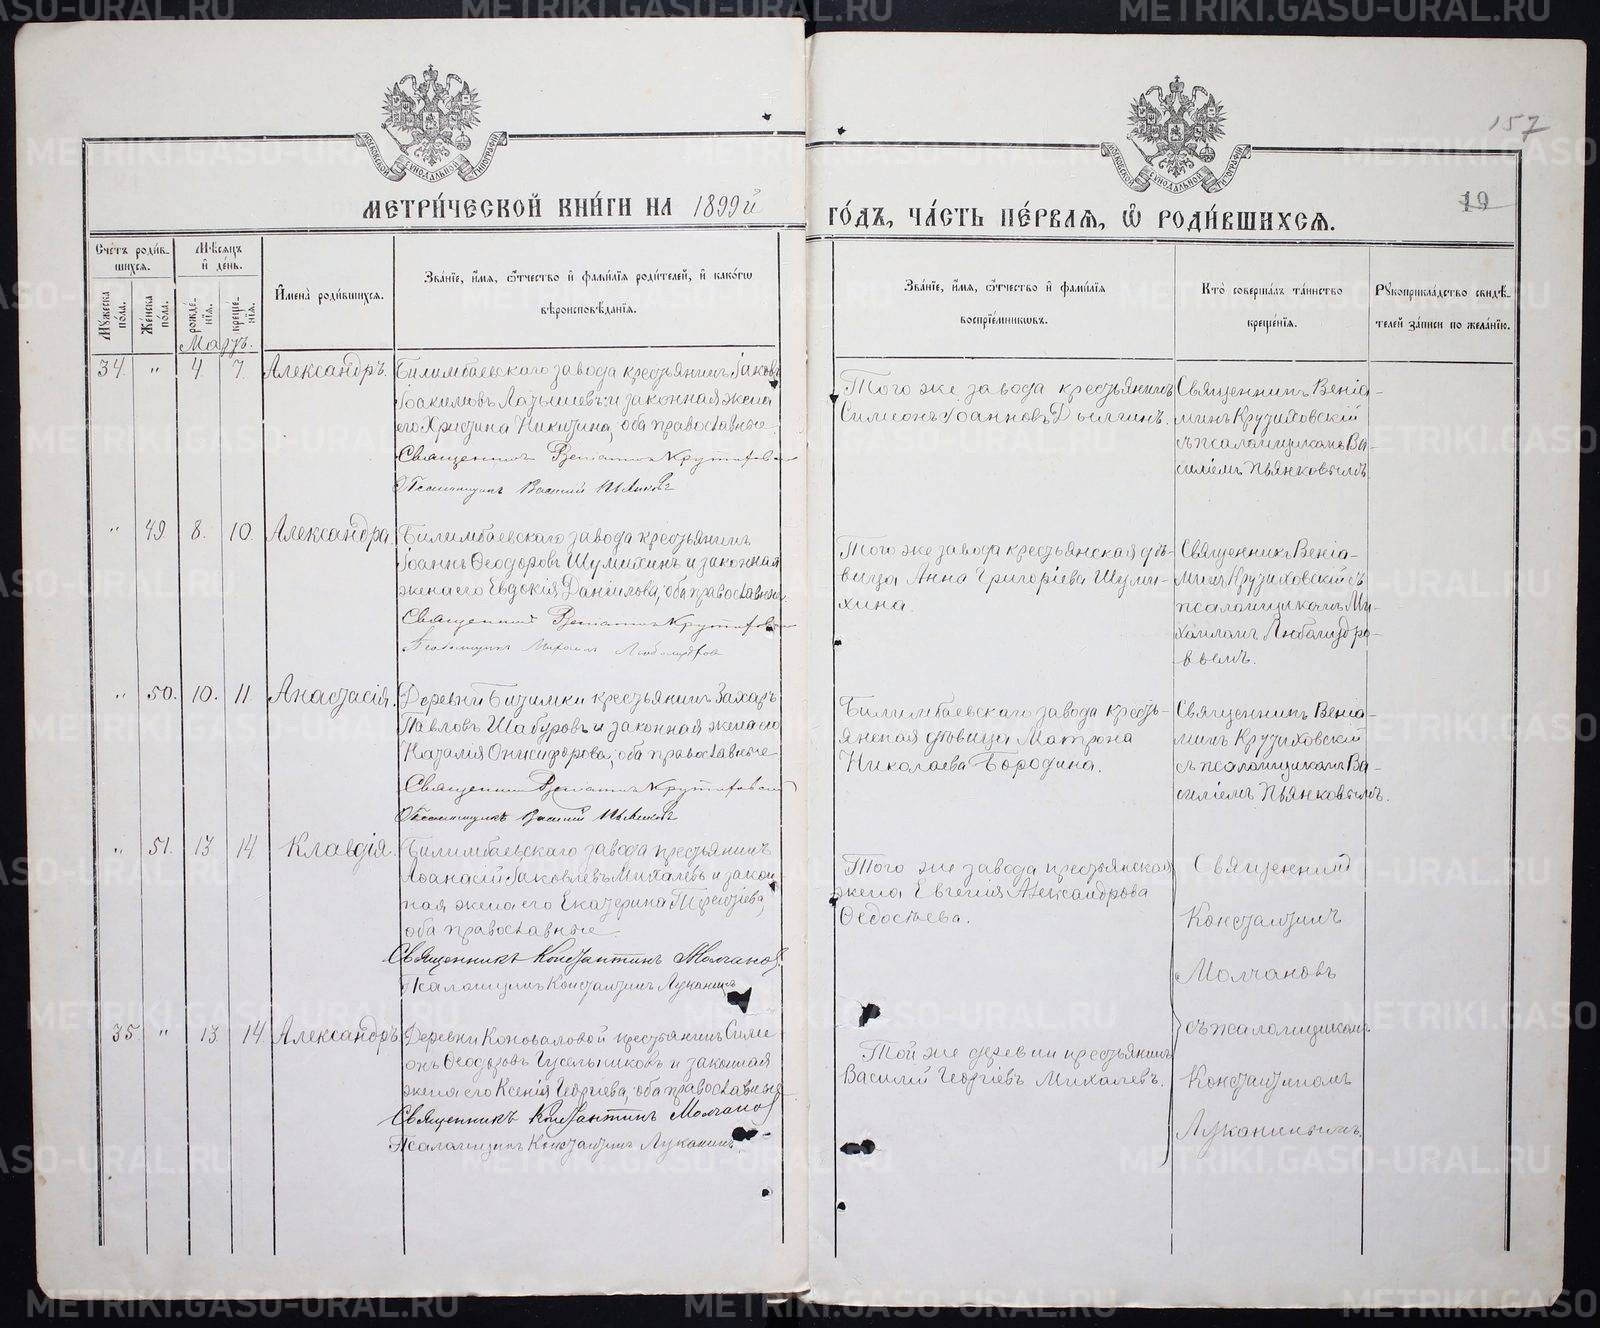 157
19
МОСКОВСКОЙ СѴНОДАЛЬНОЙ ТИПОГРАФІИ
МОСКОВСКОЙ СѴНОДАЛЬНОЙ ТИПОГРАФІИ
МЕТРИ́ЧЕСКОЙ КНИ́ГИ НА 1899й
ГО́ДЪ, ЧА́СТЬ ПЕ́РВАЯ, Ѡ҆ РОДИ́ВШИХСЯ.
Сче́тъ роди́в-
шихся.
Мѣсяцъ
и҆ де́нь.
Мꙋ́жеска по́ла.
Же́нска по́ла.
рожде́-нїѧ.
креще́-нїѧ.
И҆мена̀ роди́вшихся.
Зва́нїе, и҆́мя, ѻ҆́тчество и҆ фамѝлїя роди́телей, и҆ како́гѡ
вѣроисповѣ́данїя.
Зва́нїе, и҆́мя, ѻ҆́тчество и҆ фамѝлїя
воспрїе́мниковъ.
Кто̀ соверша́лъ та́инство
креще́нїя.
Рꙋкоприкла́дство свидѣ́-
телей за́писи по жела́нїю.
Мартъ.
34. " 4. 7. Александръ.
Билимбаевскаго завода крестьянинъ Іаковъ
Іоакимовъ Латышевъ и законная жена
его Христина Никитина, оба православные.
Священникъ Веніаминъ Крутиховскій
Псаломщикъ Василій Пьянковъ
Того же завода крестьянинъ
Симеонъ Іоанновъ Дылгинъ.
Священникъ Веніа-
минъ Крутиховскій
съ псаломщикомъ Ва-
силіемъ Пьянковымъ.
" 49. 8. 10. Александра.
Билимбаевскаго завода крестьянинъ
Іоаннъ Ѳеодоровъ Шумихинъ и законная
жена его Евдокія Даніилова, оба православные.
Священникъ Веніаминъ Крутиховскій
Псаломщикъ Михаилъ Любомудровъ
Того же завода крестьянская дѣ-
вица Анна Григоріева Шуми-
хина.
Священникъ Веніа-
минъ Крутиховскій съ
псаломщикомъ Ми-
хаиломъ Любомудро-
вымъ.
" 50. 10. 11 Анастасія.
Деревни Битимки крестьянинъ Захаръ
Павловъ Шабуровъ и законная жена его
Наталія Онисифорова, оба православные
Священникъ Веніаминъ Крутиховскій
Псаломщикъ Василій Пьянковъ
Билимбаевскаго завода кресть-
янская дѣвица Матрона
Николаева Бородина.
Священникъ Веніа-
минъ Крутиховскій
съ псаломщикомъ Ва-
силіемъ Пьянковымъ.
" 51. 13 14 Клавдія.
Билимбаевскаго завода крестьянинъ
Аѳанасій Іаковлевъ Михалевъ и закон-
ная жена его Екатерина Терентіева,
оба православные.
Священникъ Константинъ Молчановъ.
Псаломщикъ Константинъ Луканинъ
Того же завода крестьянская
жена Евгенія Александрова
Ѳедосѣева.
Священникъ
Константинъ
Молчановъ
съ псаломщикомъ
Константиномъ
Луканинымъ
35. " 13 14 Александръ.
Деревни Коноваловой крестьянинъ Симе-
онъ Ѳеодоровъ Гусельниковъ и законная
жена его Ксенія Георгіева, оба православные
Священникъ Константинъ Молчановъ
Псаломщикъ Константинъ Луканинъ.
Той же деревни крестьянинъ
Василій Георгіевъ Михалевъ.